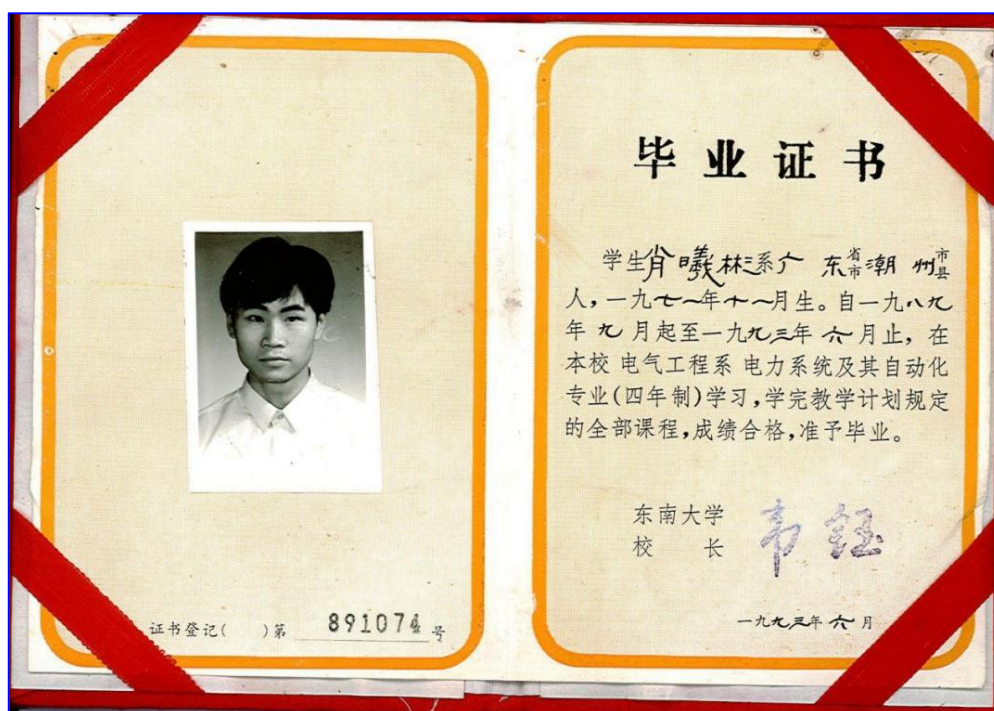 证书登记( )第 891074 号
毕业证书
学生肖曦林系广东省市潮州市县
人,一九七一年十一月生。自一九八九
年九月起至一九九三年六月止,在
本校 电气工程系 电力系统及其自动化
专业(四年制)学习,学完教学计划规定
的全部课程,成绩合格,准予毕业。
东南大学
校 长 韦钰
一九九三年六月